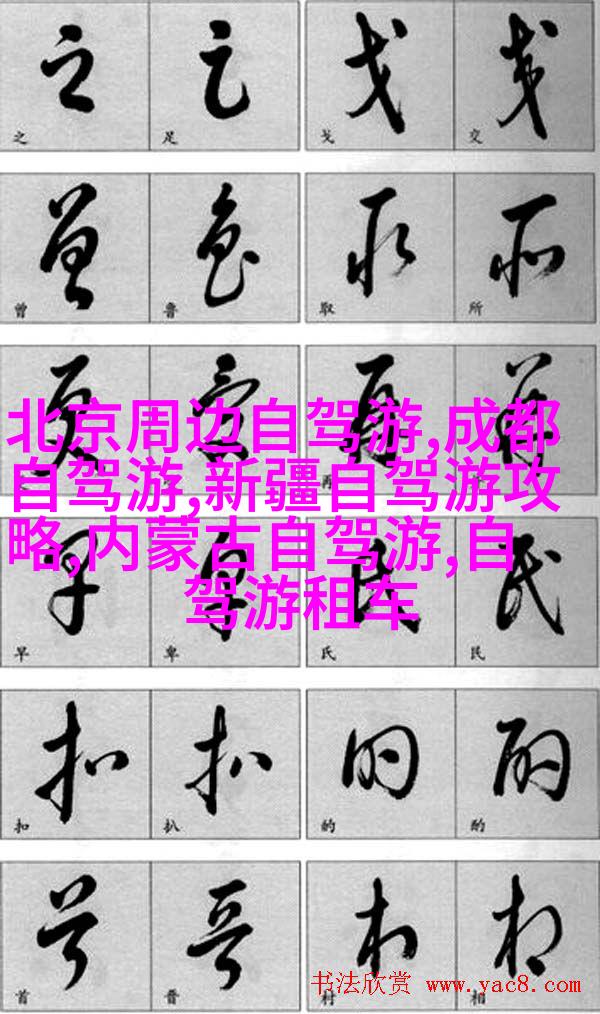 之 足 戈 交
曾 鲁 取 所
北京周边自驾游,成都
自驾游,新疆自驾游攻
略,内蒙古自驾游,自
驾游租车
早 卑 氏 民
扣 扒 的 酌
首 晋 村 相
书法欣赏 www.yac8.com